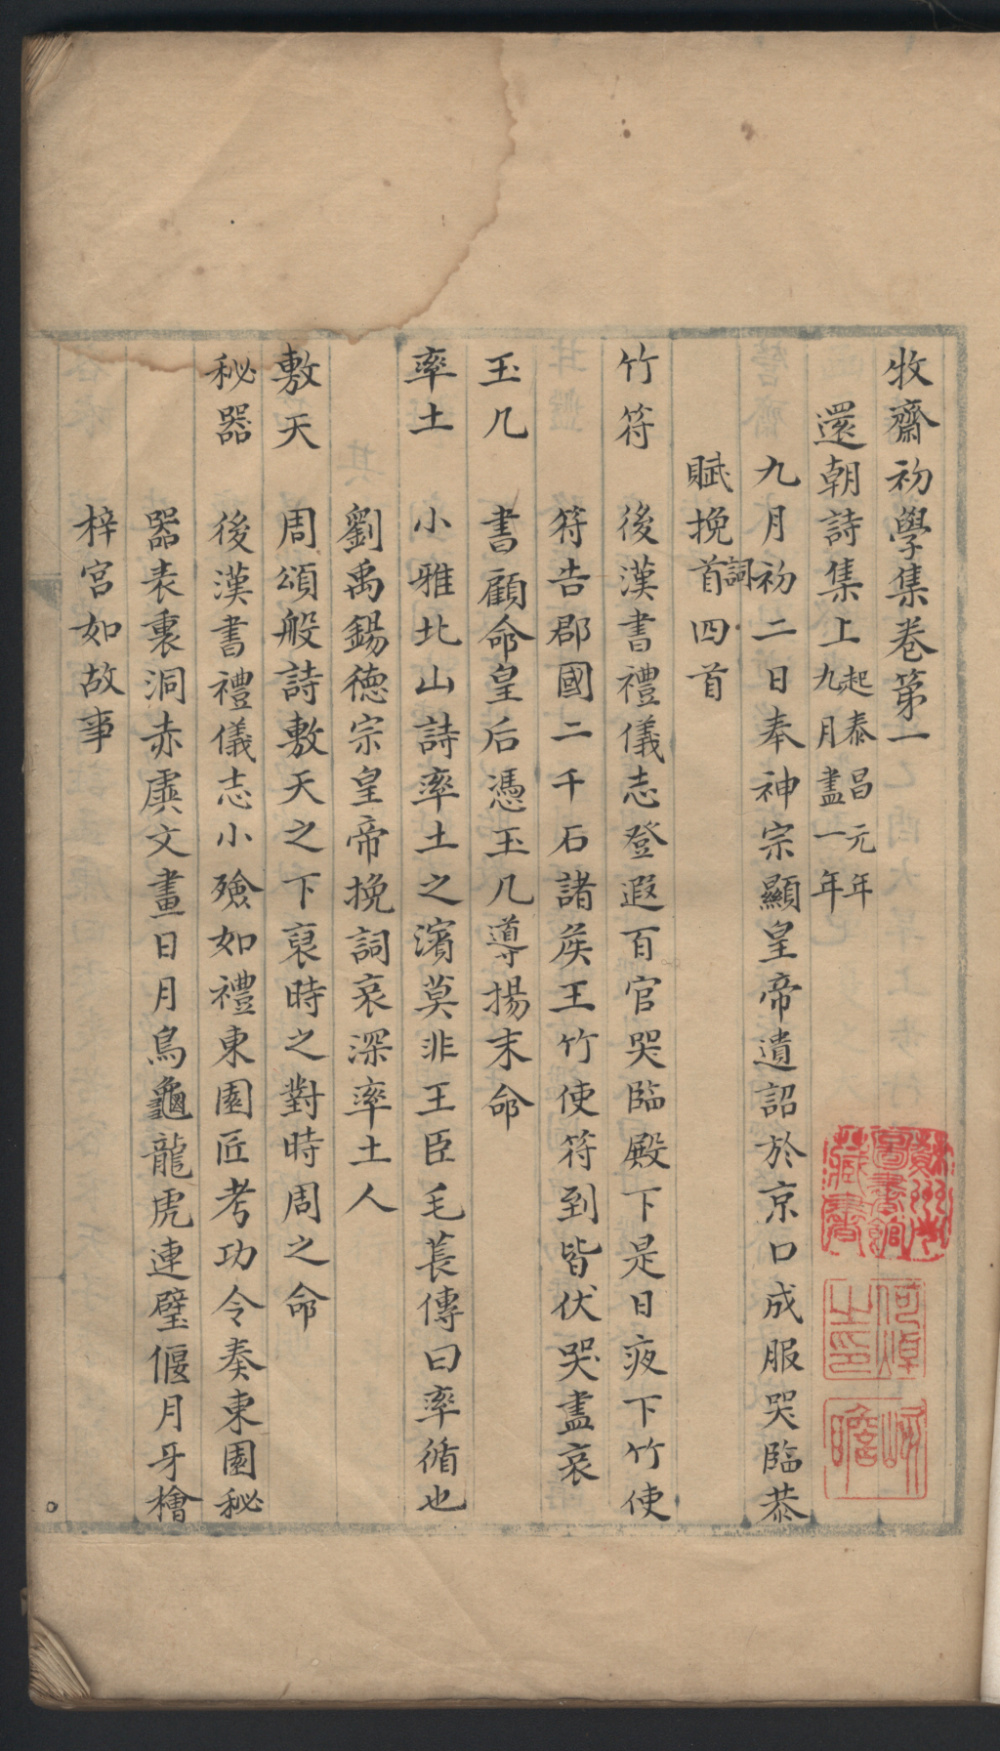 牧齋初學集卷第一
還朝詩集上起泰昌元年九月盡一年
九月初二日奉神宗顯皇帝遺詔於京口成服哭臨恭
賦挽詞首四首
竹符 後漢書禮儀志登遐百官哭臨殿下是日夜下竹使
符告郡國二千石諸侯王竹使符到皆伏哭盡哀
玉几 書顧命皇后憑玉几導揚末命
率土 小雅北山詩率土之濱莫非王臣毛萇傳曰率循也
劉禹錫德宗皇帝挽詞哀深率土人
敷天 周頌般詩敷天之下裒時之對時周之命
秘器 後漢書禮儀志小殮如禮東園匠考功令奏東園秘
器表裏洞赤虡文畫日月鳥龜龍虎連璧偃月牙檜
梓宮如故事
蘇州圖書館藏書
何焯之印
屺瞻